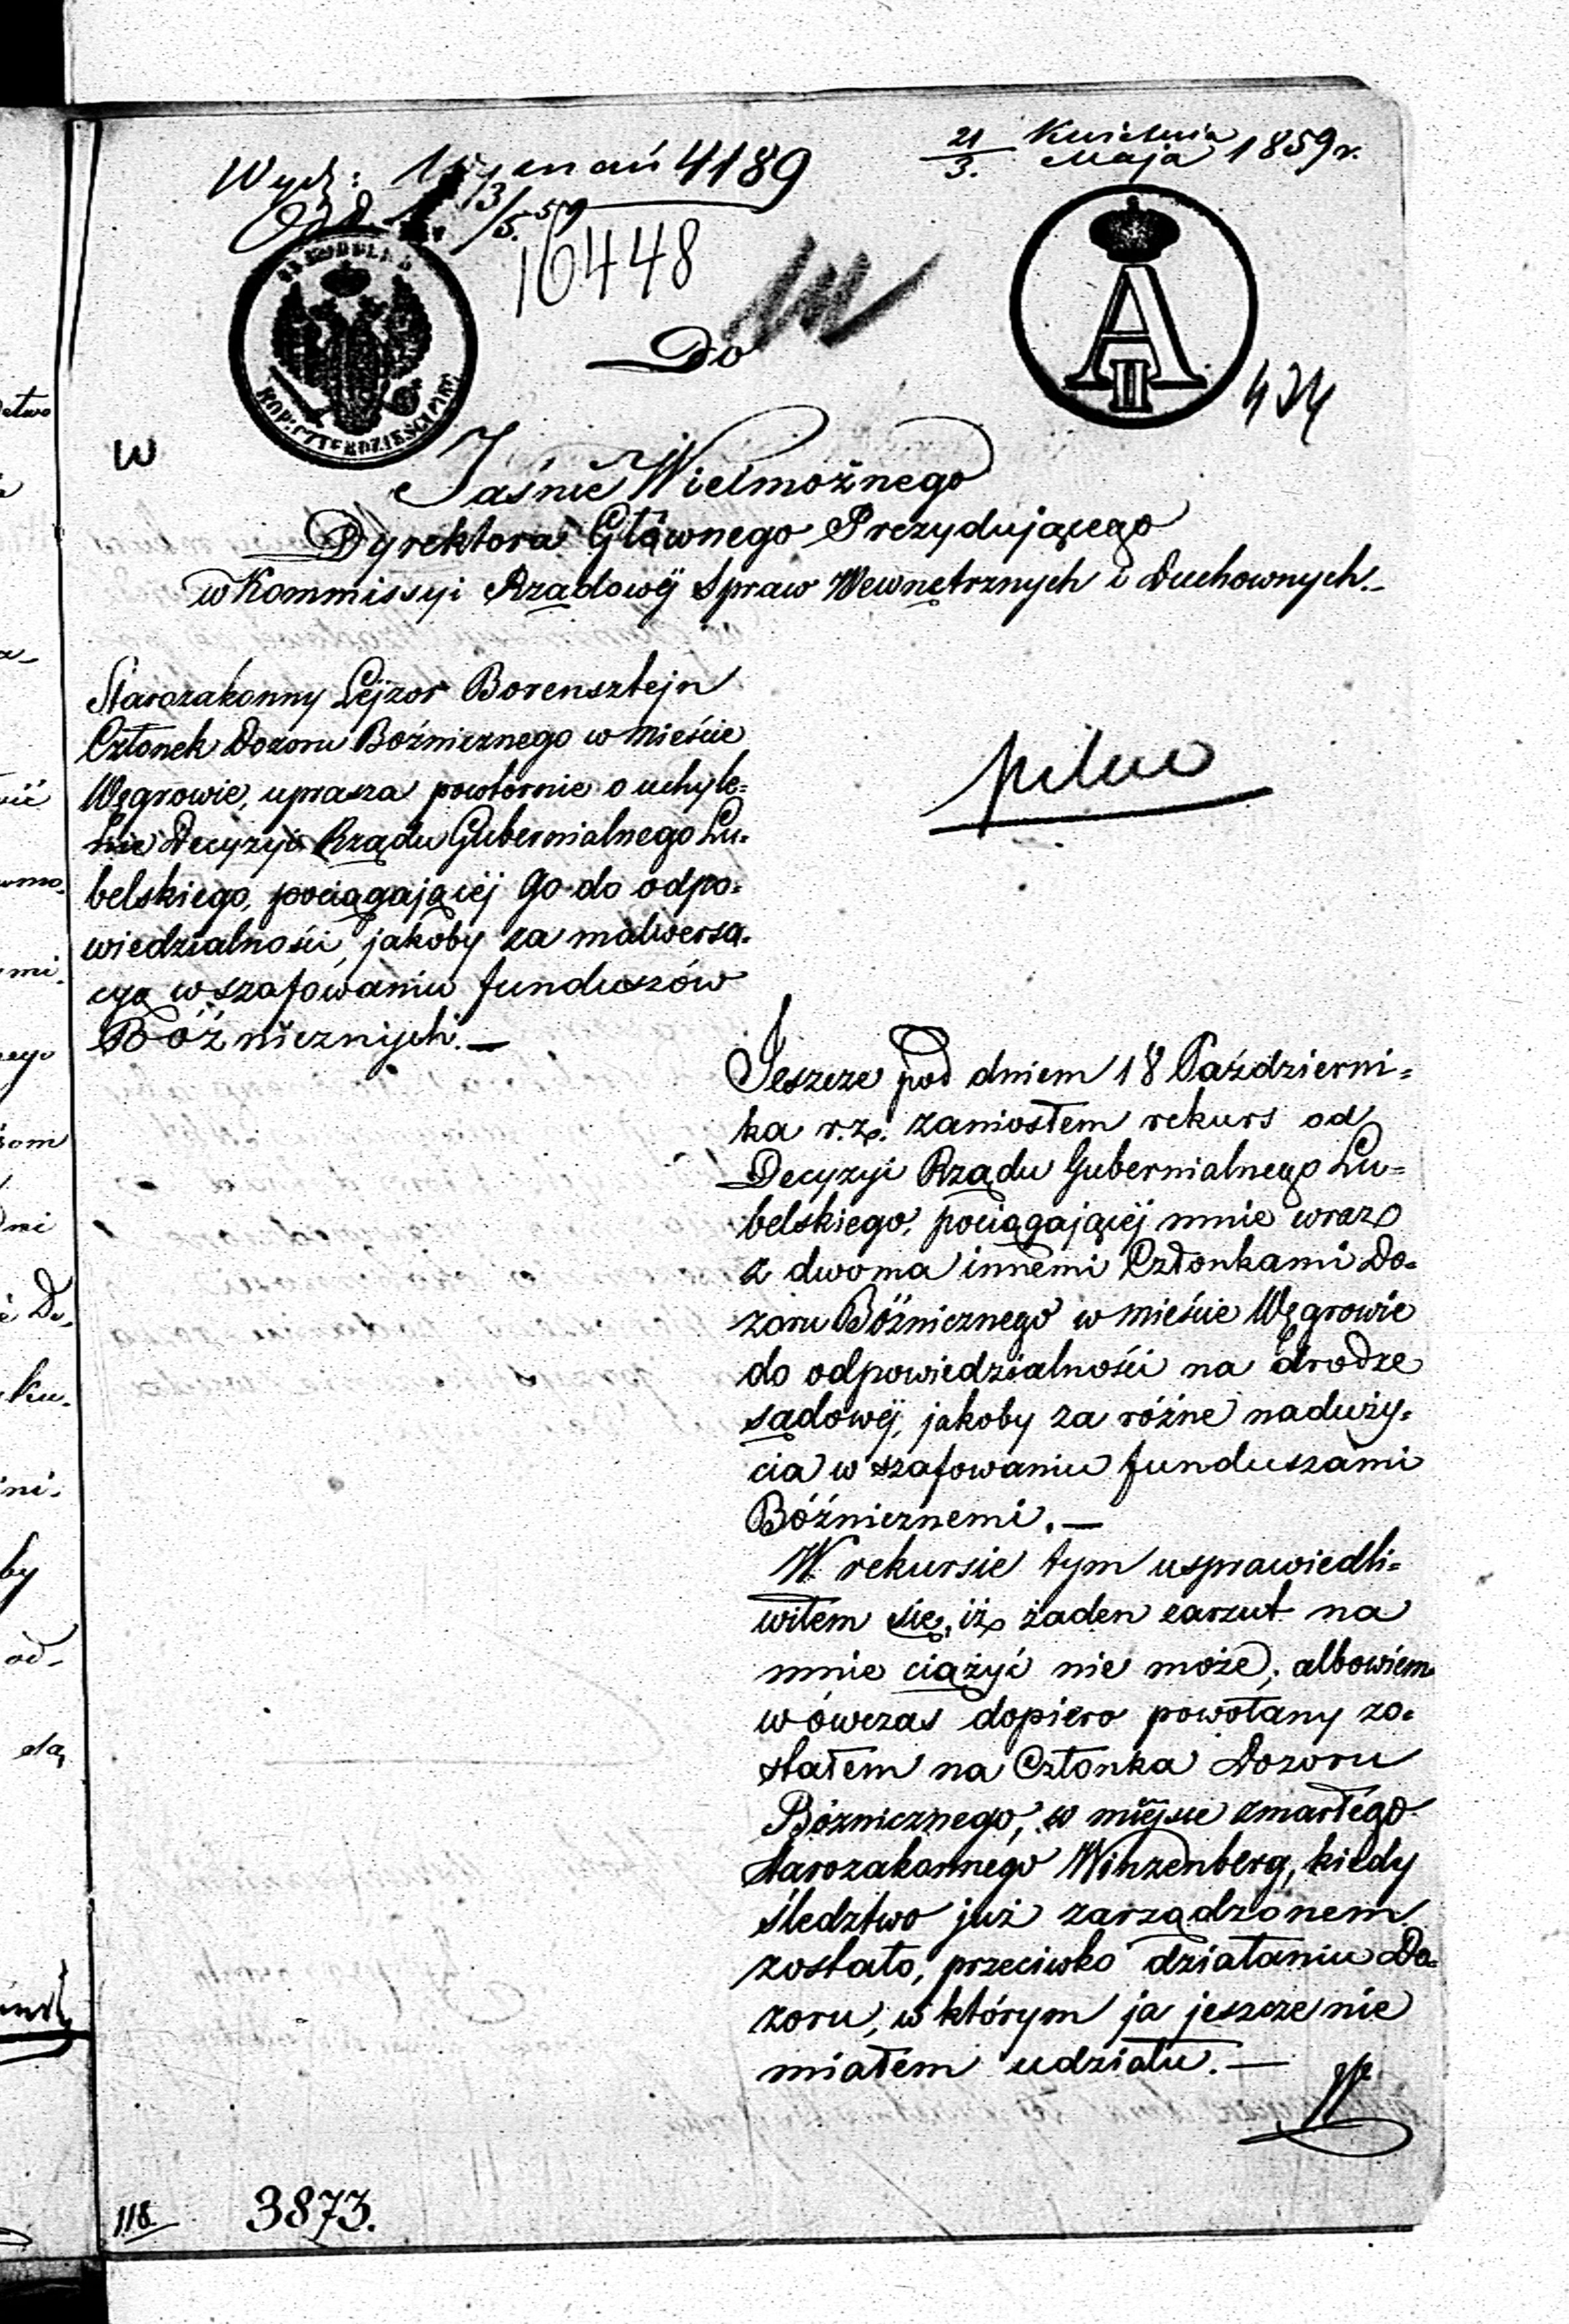 21/3. Kwietnia/Maja 1859 r.
Wydz: 4189
3/5 59
16448
Do
434
KOP: CZTERDZIEŚCI PIĘĆ
A II
W
Jaśnie Wielmożnego
Dyrektora Głównego Prezydującego
w Kommissyi Rządowéj Spraw Wewnętrznych i Duchownych.
Starozakonny Lejzor Borensztejn
Członek Dozoru Bożnicznego w mieście
Węgrowie, uprasza powtórnie o uchyle=
nie Decyzyi Rządu Gubernialnego Lu=
belskiego, pociągającéj Go do odpo=
wiedzialności, jakoby za malwersa=
cyą w szafowaniu funduszów
Bóżnicznych.—
pilne
Jeszcze pod dniem 18 Październi=
ka r.z. zaniosłem rekurs od
Decyzyi Rządu Gubernialnego Lu=
belskiego, pociągającéj mnie wraz
z dwoma innemi Członkami Do=
zoru Bóżnicznego w mieście Węgrowie
do odpowiedzialności na drodze
sądowéj, jakoby za różne naduży=
cia w szafowaniu funduszami
Bóźnicznemi.—
W rekursie tym usprawiedli=
wiłem się, iż żaden zarzut na
mnie ciążyć nie może; albowiem
wówczas dopiero powołany zo=
stałem na Członka Dozoru
Bóżnicznego, w miejsce zmarłego
starozakonnego Winzenberg, kiedy
śledztwo już zarządzonem
zostało, przeciwko działaniu Do=
zoru, w którym ja jeszcze nie
miałem udziału.—
118
3873.